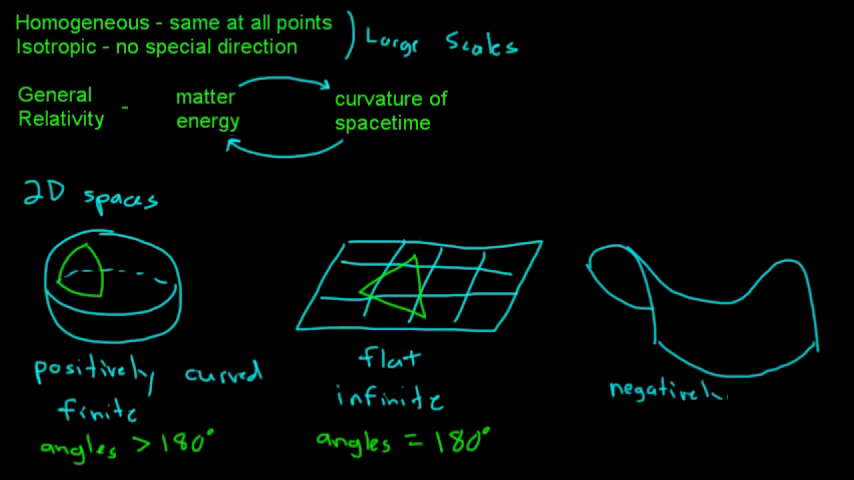 Homogeneous - same at all points
Isotropic - no special direction
Large Scales
General Relativity - matter energy curvature of spacetime
2D spaces
positively curved
finite
angles > 180°
flat
infinite
angles = 180°
negatively